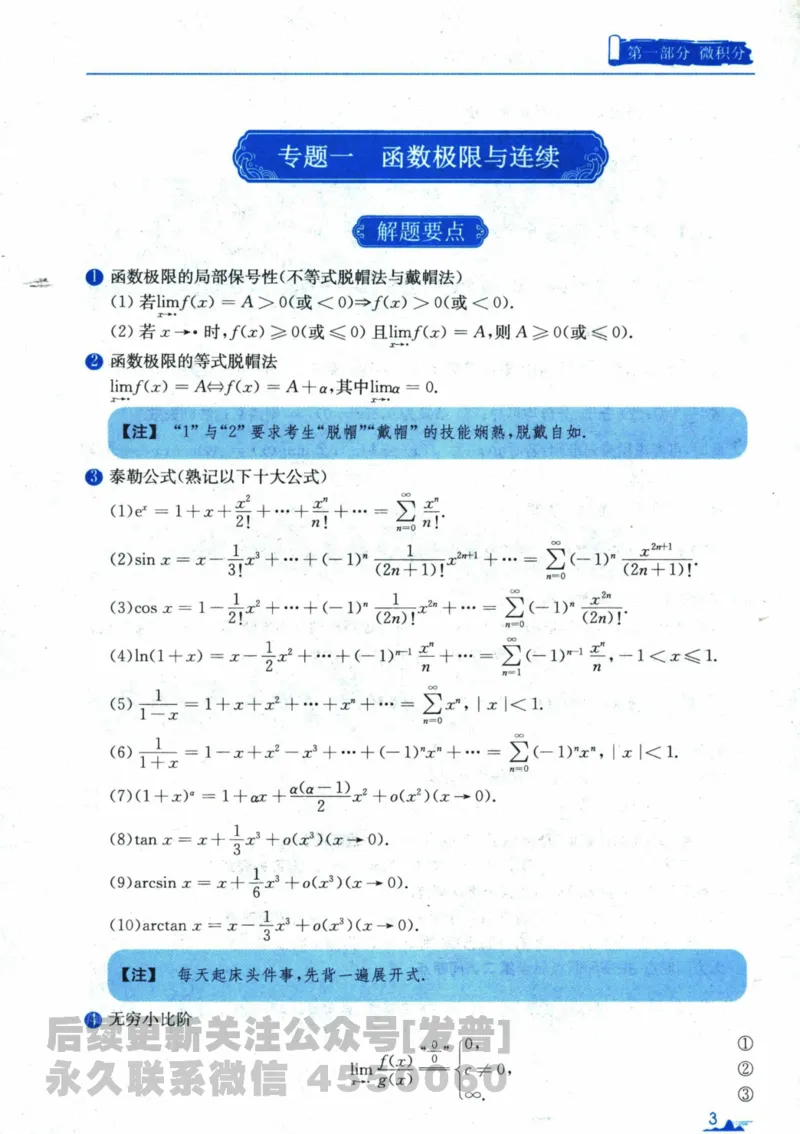 第一部分 微积分
专题一 函数极限与连续
解题要点
❶ 函数极限的局部保号性(不等式脱帽法与戴帽法)
(1) 若lim_{x→•} f(x) = A > 0(或 < 0)⇒f(x) > 0(或 < 0).
(2) 若 x →• 时,f(x) ⩾ 0(或 ⩽ 0) 且lim_{x→•} f(x) = A,则 A ⩾ 0(或 ⩽ 0).
❷ 函数极限的等式脱帽法
lim_{x→•} f(x) = A⇔f(x) = A + α,其中lim_{x→•} α = 0.
【注】 “1”与“2”要求考生“脱帽”“戴帽”的技能娴熟,脱戴自如.
❸ 泰勒公式(熟记以下十大公式)
(1)e^x = 1 + x + x^2/2! + … + x^n/n! + … = ∑_{n=0}^{∞} x^n/n!.
(2)sin x = x − 1/3! x^3 + … + (−1)^n 1/(2n+1)! x^{2n+1} + … = ∑_{n=0}^{∞} (−1)^n x^{2n+1}/(2n+1)!.
(3)cos x = 1 − 1/2! x^2 + … + (−1)^n 1/(2n)! x^{2n} + … = ∑_{n=0}^{∞} (−1)^n x^{2n}/(2n)!.
(4)ln(1+x) = x − 1/2 x^2 + … + (−1)^{n−1} x^n/n + … = ∑_{n=1}^{∞} (−1)^{n−1} x^n/n, −1 < x ⩽ 1.
(5) 1/(1−x) = 1 + x + x^2 + … + x^n + … = ∑_{n=0}^{∞} x^n, | x |< 1.
(6) 1/(1+x) = 1 − x + x^2 − x^3 + … + (−1)^n x^n + … = ∑_{n=0}^{∞} (−1)^n x^n, | x |< 1.
(7)(1+x)^α = 1 + αx + α(α−1)/2 x^2 + o(x^2)(x → 0).
(8)tan x = x + 1/3 x^3 + o(x^3)(x → 0).
(9)arcsin x = x + 1/6 x^3 + o(x^3)(x → 0).
(10)arctan x = x − 1/3 x^3 + o(x^3)(x → 0).
【注】 每天起床头件事,先背一遍展开式.
❹ 无穷小比阶
后续更新关注公众号[发普]
永久联系微信 4550060
lim_{x→•} f(x)/g(x) “0/0” { 0, ①
c ≠ 0, ②
∞. ③
3